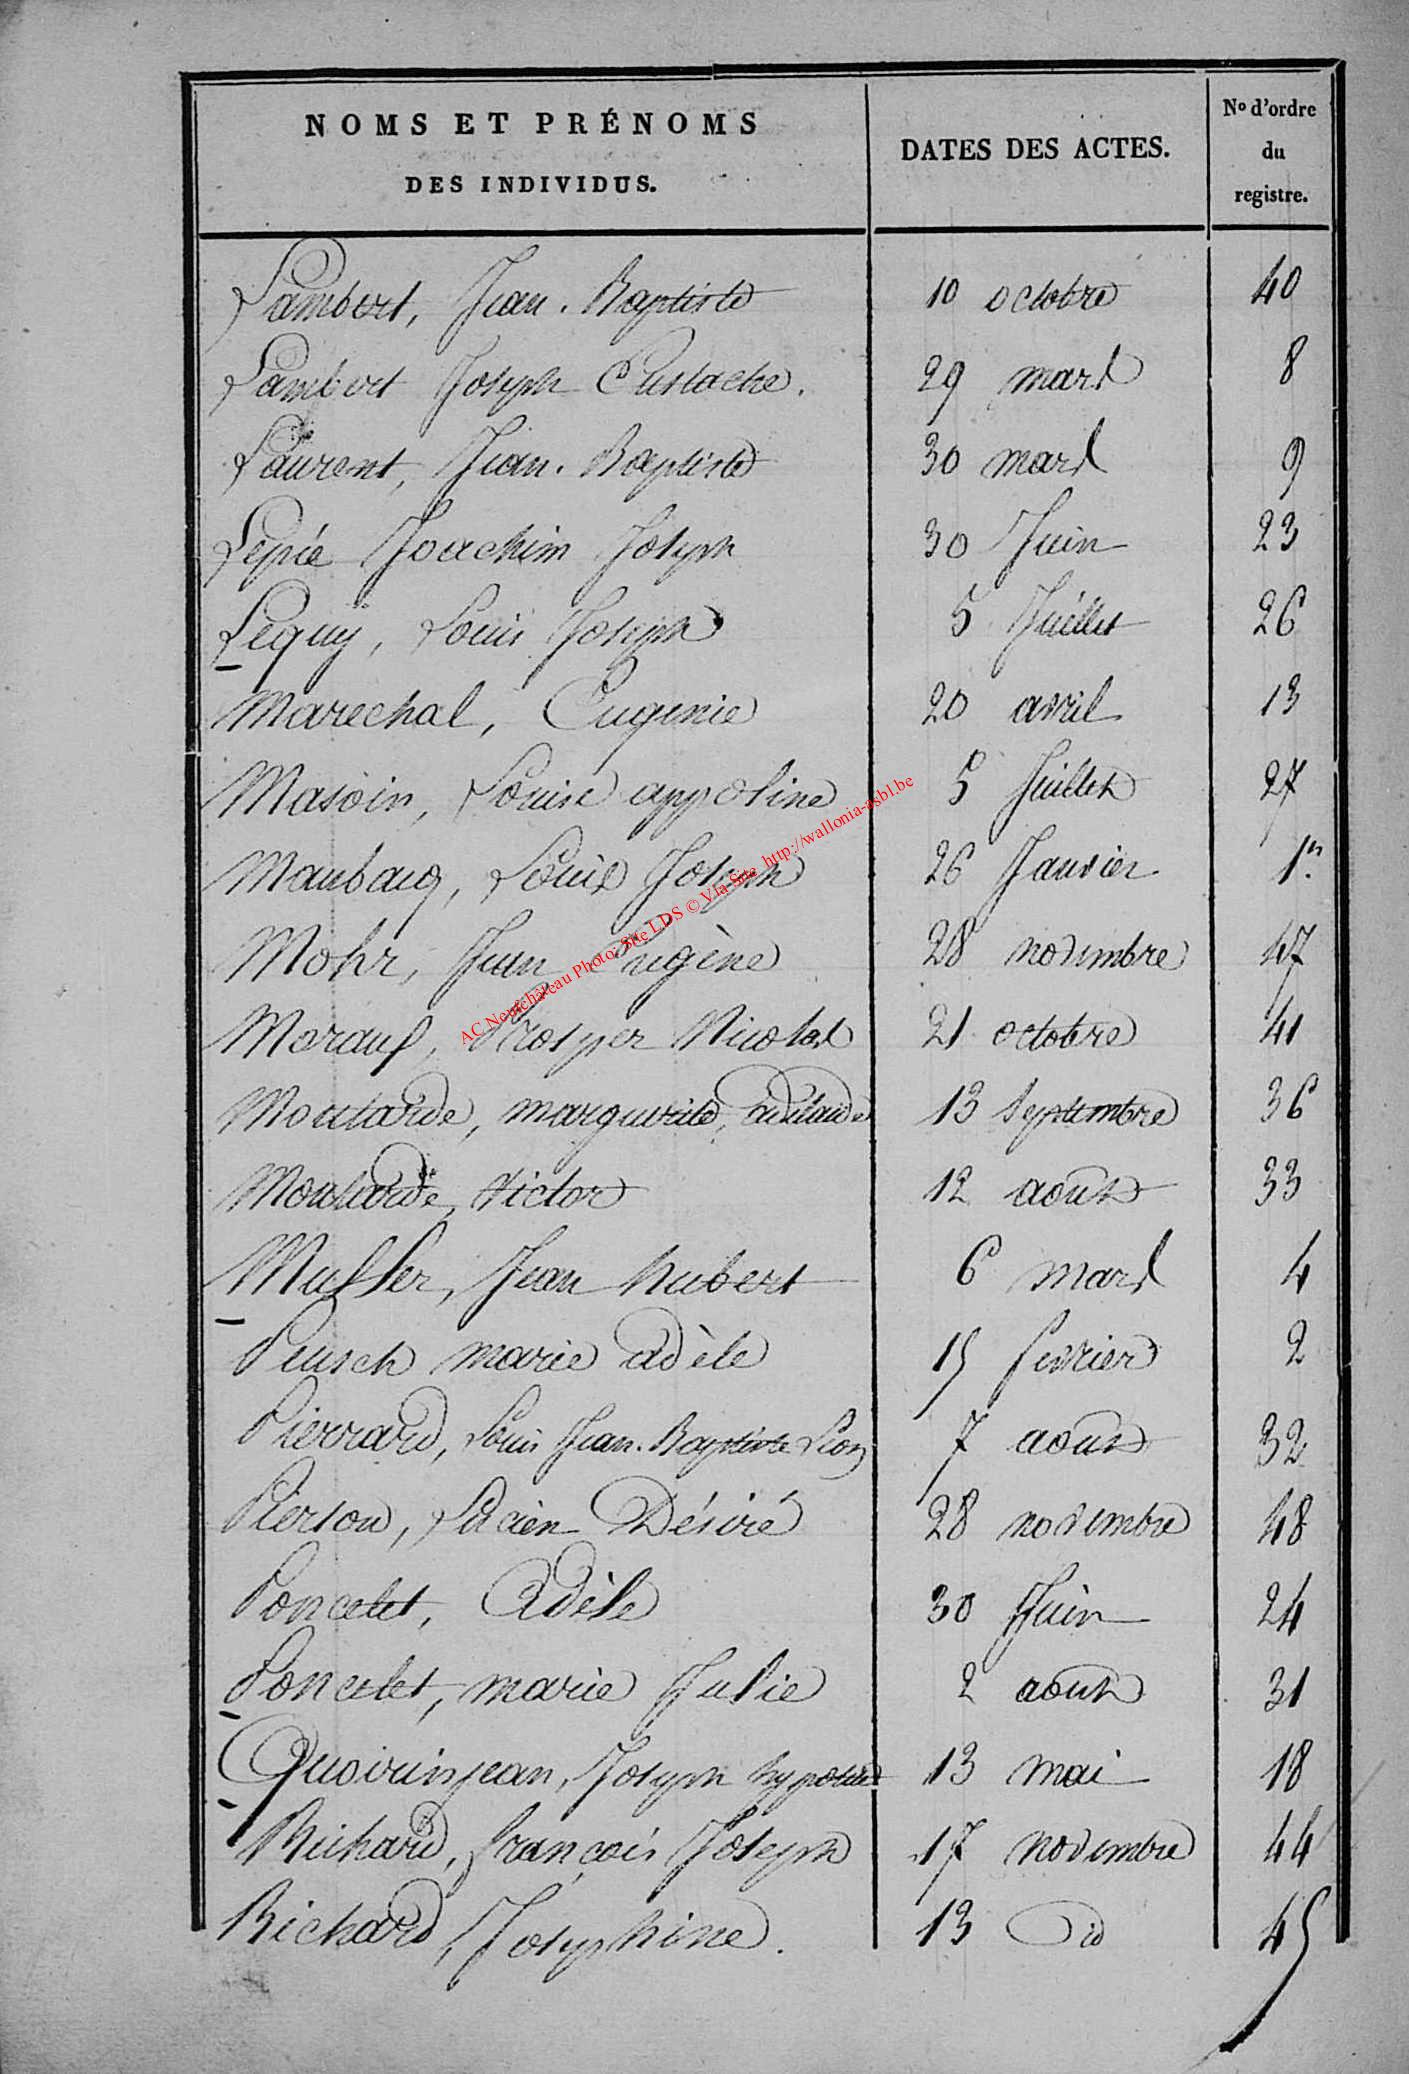 NOMS ET PRÉNOMS DES INDIVIDUS. DATES DES ACTES. No d'ordre du registre.
Lambert, Jean-Baptiste 10 octobre 40
Lambert Joseph Eustache. 29 mars 8
Laurent, Jean-Baptiste 30 mars 9
Lepié Joachim Joseph 30 Juin 23
Lequy, Louis Joseph 5 Juillet 26
Marechal, Eugenie 20 avril 13
Masoin, Louise appoline 5 Juillet 27
Maubacq, Louis Joseph 26 Janvier 1er
Mohr, Jean Eugène 28 novembre 47
Moraux, Prosper Nicolas 21 octobre 41
Moutarde, marguerite, adelaide 13 septembre 36
Moutarde, Victor 12 août 33
Muller, Jean hubert 6 mars 4
Peusch marie adèle 15 fevrier 2
Pierrard, Louis Jean-Baptiste Léon 7 août 32
Pierson, Lucien Désiré 28 novembre 48
Poncelet, Adèle 30 Juin 24
Poncelet, marie Julie 2 août 31
Quoirinjean, Joseph hypolite 13 mai 18
Richard, françois Joseph 17 novembre 44
Richard, Josephine. 13 id 45
AC Neufchâteau Photo: Site LDS © V.la Site http://wallonia-asbl.be